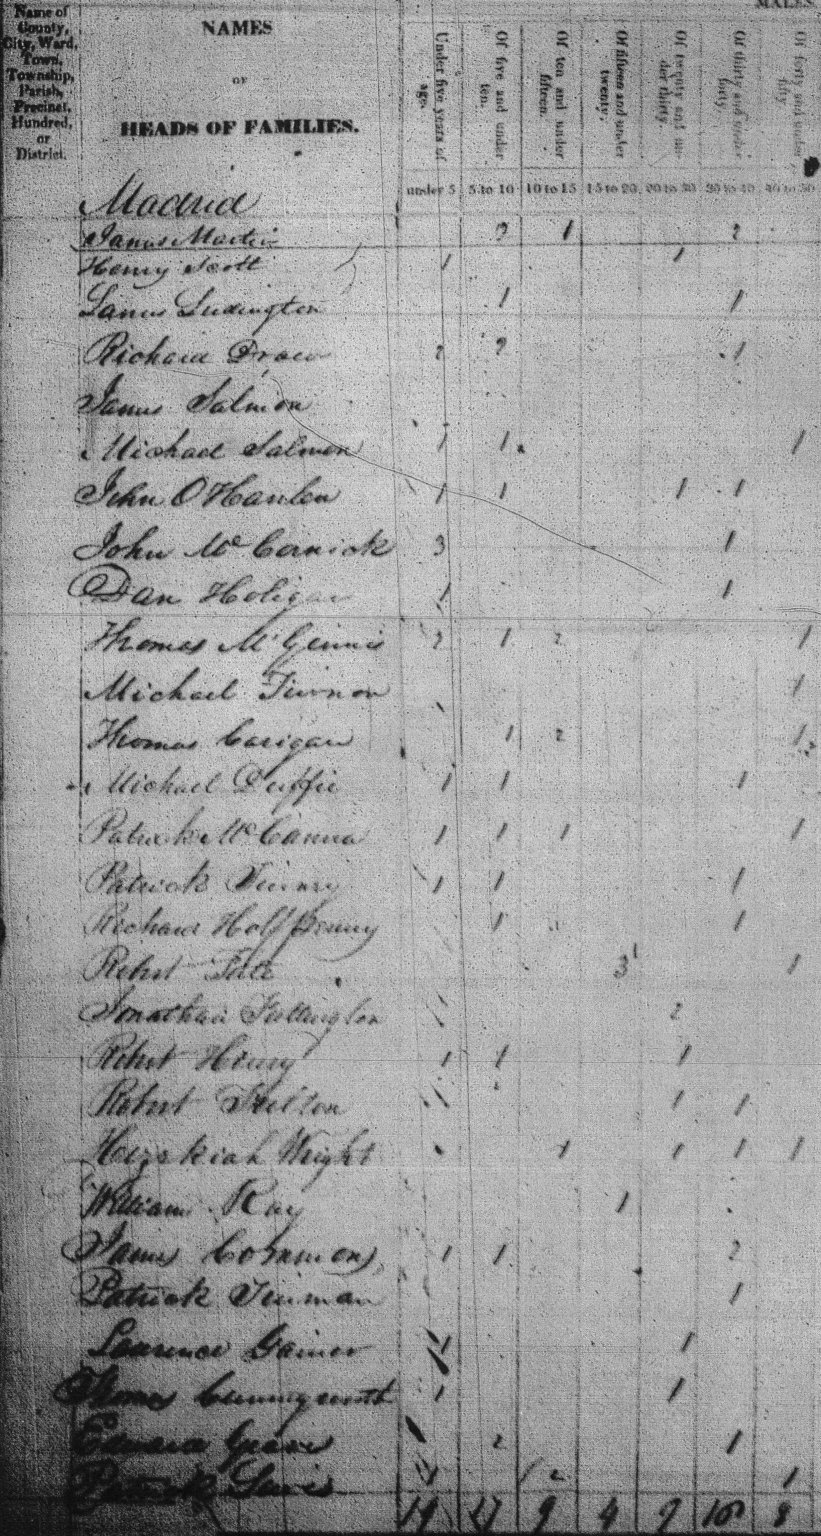 MALES.
Name of County, City, Ward, Town, Township, Parish, Precinct, Hundred, or District.
NAMES
OF
HEADS OF FAMILIES.
Under five years of age.
Of five and under ten.
Of ten and under fifteen.
Of fifteen and under twenty.
Of twenty and under thirty.
Of thirty and under forty.
Of forty and under fifty
under 5 5 to 10 10 to 15 15 to 20 20 to 30 30 to 40 40 to 50
Madrid
James Martin 2 1 2
Henry Scott 1 1
Ludington 1 1
Richard Draw 2 2 1
James Salmon
Michael Salmon 1 1 1
John O'Hanlon 1 1 1 1
John McCornick 3 1
Dan Holigan 1 1
Thomas McGinnis 2 1 2 1
Michael 1
Thomas Carigan 1 2 1
Michael Duffie 1 1 1
Patrick McCanna 1 1 1 1
Patrick 1 1 1
Richard Halfpenny 1 1
Robert Tate 3 1
Jonathan 2
Robert Henry 1 1 1
Robert Fulton 1 1
Hezekiah Wright 1 1 1 1
William Ray 1
James Commons 1 1 2
Patrick 1
Laurence Gainor 1 1
Thomas 1 1
Edward 2 1
Patrick 1 2 1
19 17 9 4 9 8